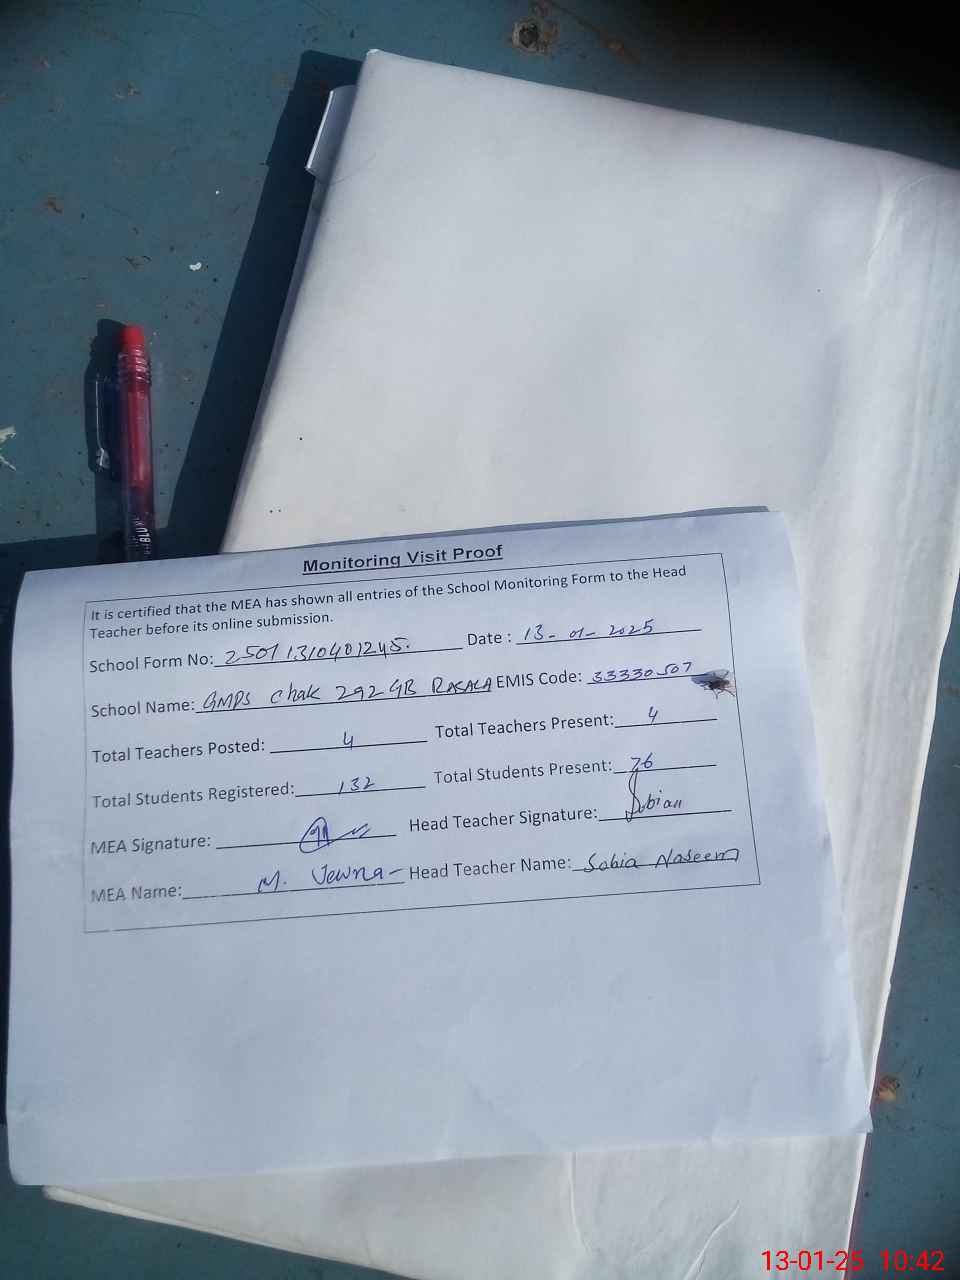 Monitoring Visit Proof
It is certified that the MEA has shown all entries of the School Monitoring Form to the Head
Teacher before its online submission.
School Form No: 25011310401245. Date : 13-01-2025
School Name: GMPS Chak 292 GB RASALA EMIS Code: 33330507
Total Teachers Posted: 4 Total Teachers Present: 4
Total Students Registered: 132 Total Students Present: 76
MEA Signature: Head Teacher Signature: Sobian
MEA Name: M. Head Teacher Name: Sobia Naseem
13-01-25 10:42